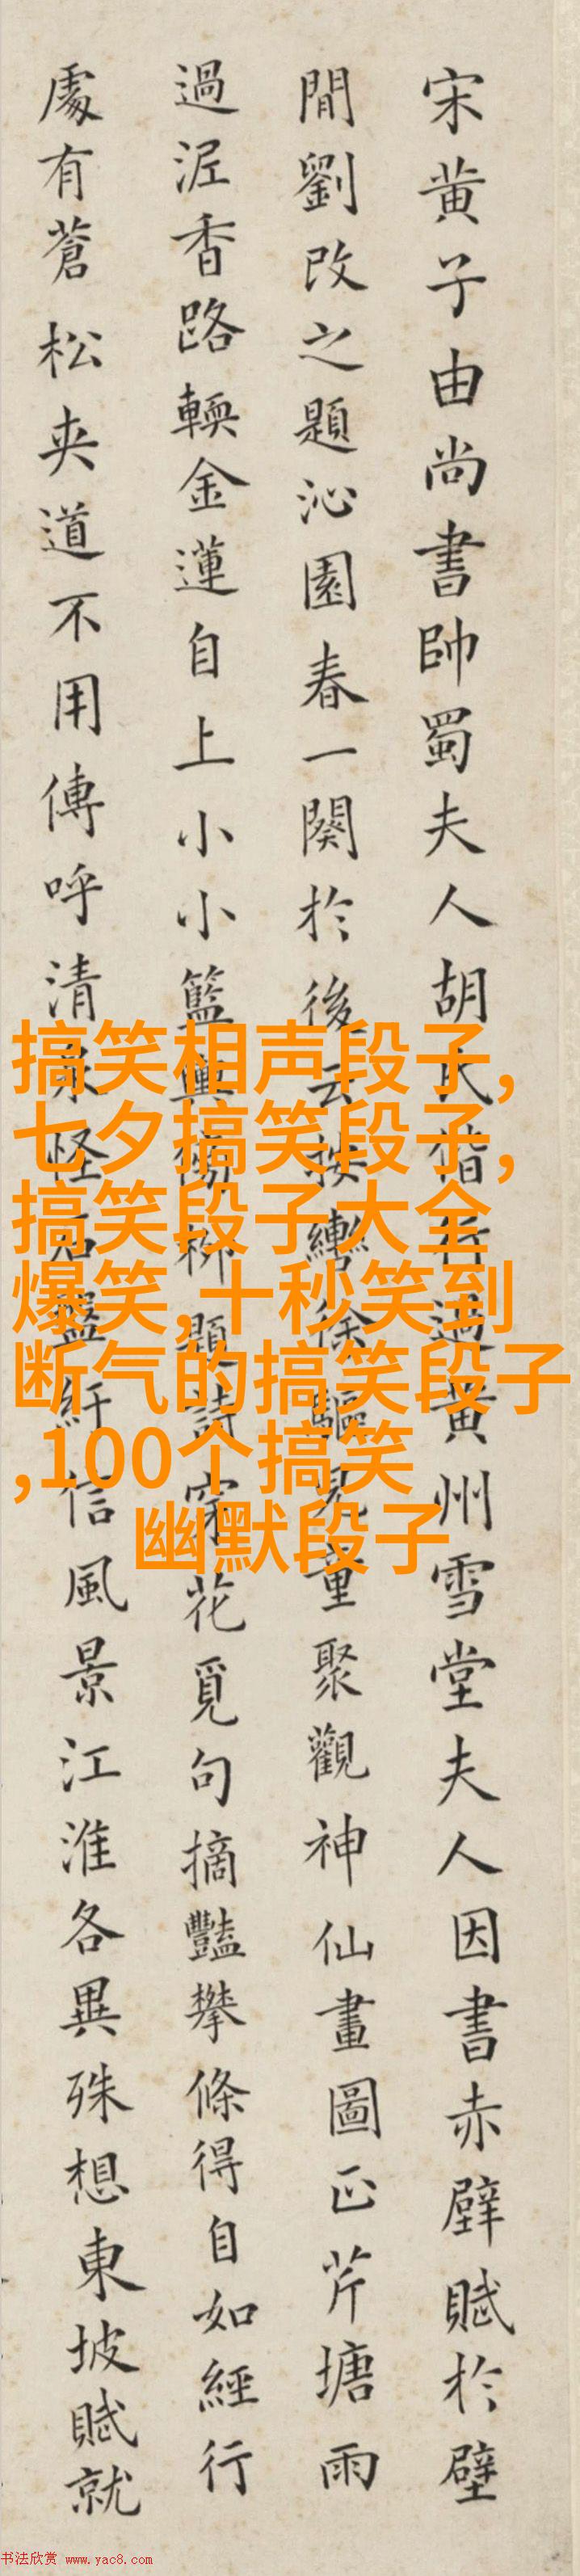 宋黄子由尚書帥蜀夫人胡氏偕行過黄州雪堂夫人因書赤壁賦於壁
間劉改之題沁園春一闋於後云按轡徐驅兒童聚觀神仙畫圖正芹塘雨
過泥香路輭金蓮自上小小籃輿傍柳題詩穿花覓句摘豔攀條得自如經行
處有蒼松夾道不用傳呼清泉怪石盤紆信風景江淮各異殊想東坡賦就
搞笑相声段子,
七夕搞笑段子,
搞笑段子大全
爆笑,十秒笑到
断气的搞笑段子
,100个搞笑
幽默段子
书法欣赏 www.yac8.com